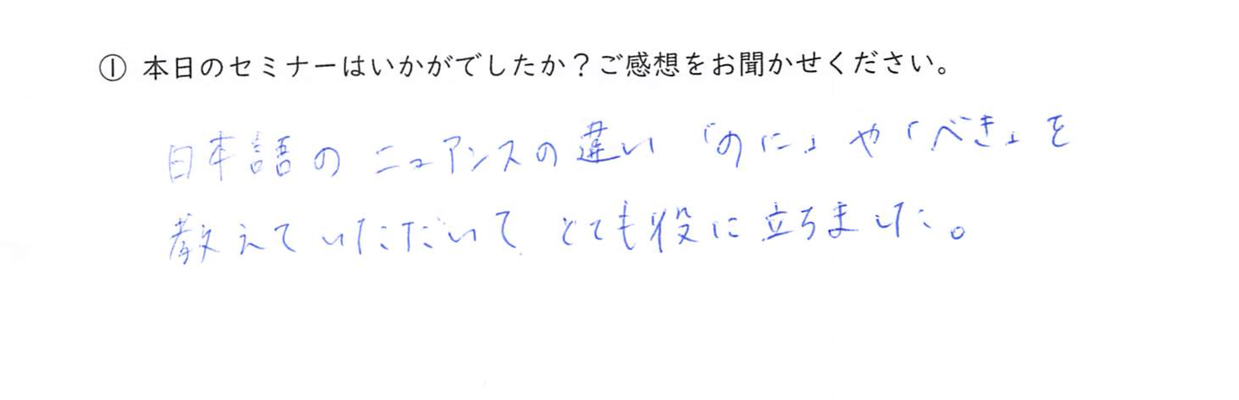 ① 本日のセミナーはいかがでしたか？ご感想をお聞かせください。
日本語の ニュアンスの違い 「のに」や「べき」を
教えていただいて とても役に立ちました。